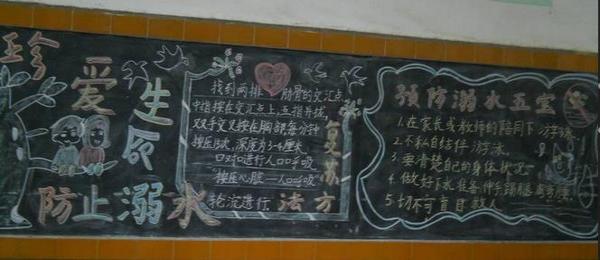 珍爱生命
防止溺水
找到两排肋骨的交汇点
中指按在交汇点上,五指并拢,
双手交叉按在胸部每分钟
按压 次,深度为3-4厘米
口对口进行人口吸
按压心脏 人口吸
轮流进行
复苏方法
预防溺水五宝
1.在家长或教师的陪同下游泳
2.不私自结伴游泳
3.要清楚自己的身体状况
4.做好下水准备伸手踢腿
5.切不可盲目救人